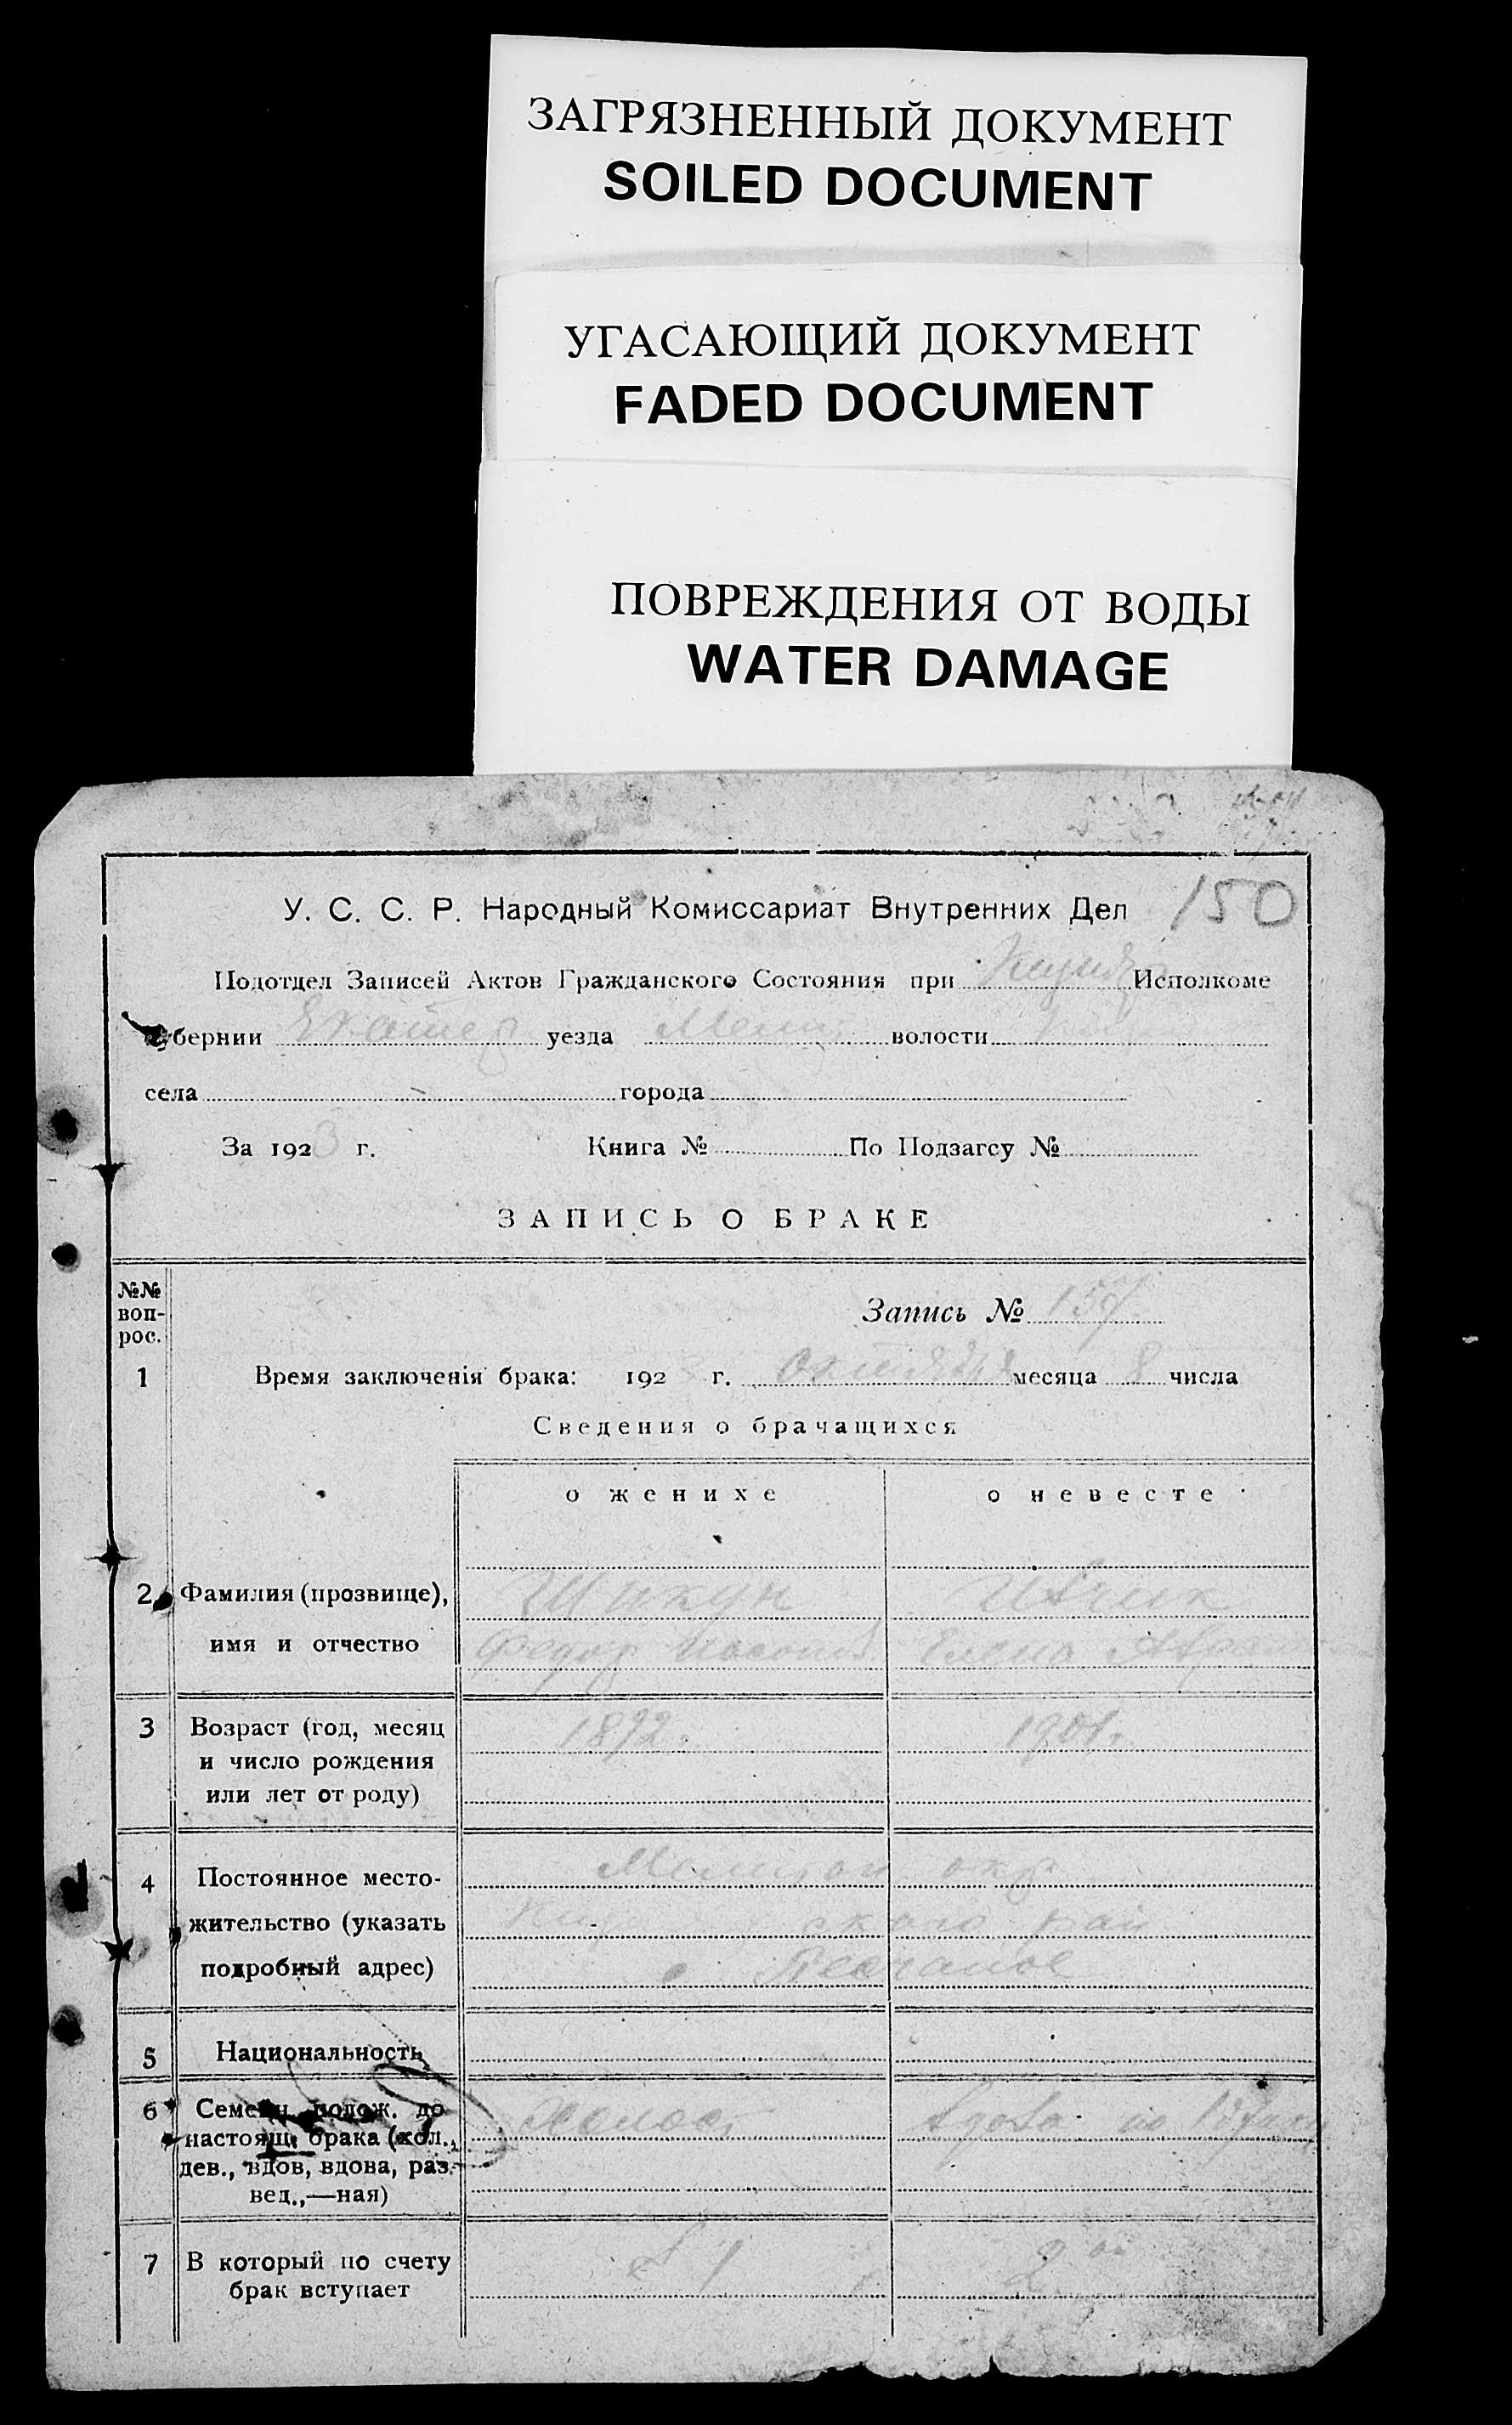 ЗАГРЯЗНЕННЫЙ ДОКУМЕНТ
SOILED DOCUMENT
УГАСАЮЩИЙ ДОКУМЕНТ
FADED DOCUMENT
ПОВРЕЖДЕНИЯ ОТ ВОДЫ
WATER DAMAGE
150
У. С. С. Р. Народный Комиссариат Внутренних Дел
Подотдел Записей Актов Гражданского Состояния при Исполкоме
губернии Екатер уезда Мели волости
села города
За 1923 г. Книга № По Подзагсу №
ЗАПИСЬ О БРАКЕ
№№ воп-
рос.
Запись № 157
1 Время заключенія брака: 192 г. октября месяца 8 числа
Сведения о брачащихся
о женихе о невесте
2 Фамилия (прозвище), Шикун Ивчик
имя и отчество Федор Елена
3 Возраст (год, месяц 1892. 1901.
и число рождения
или лет от роду)
4 Постоянное место- окр
жительство (указать рай
подробный адрес) с Песчаное
5 Национальность
6 Семейн. полож. до Холост вдова
настоящ. брака (хол.,
дев., вдов, вдова, раз-
вед.,—ная)
7 В который по счету 1 2ой
брак вступает